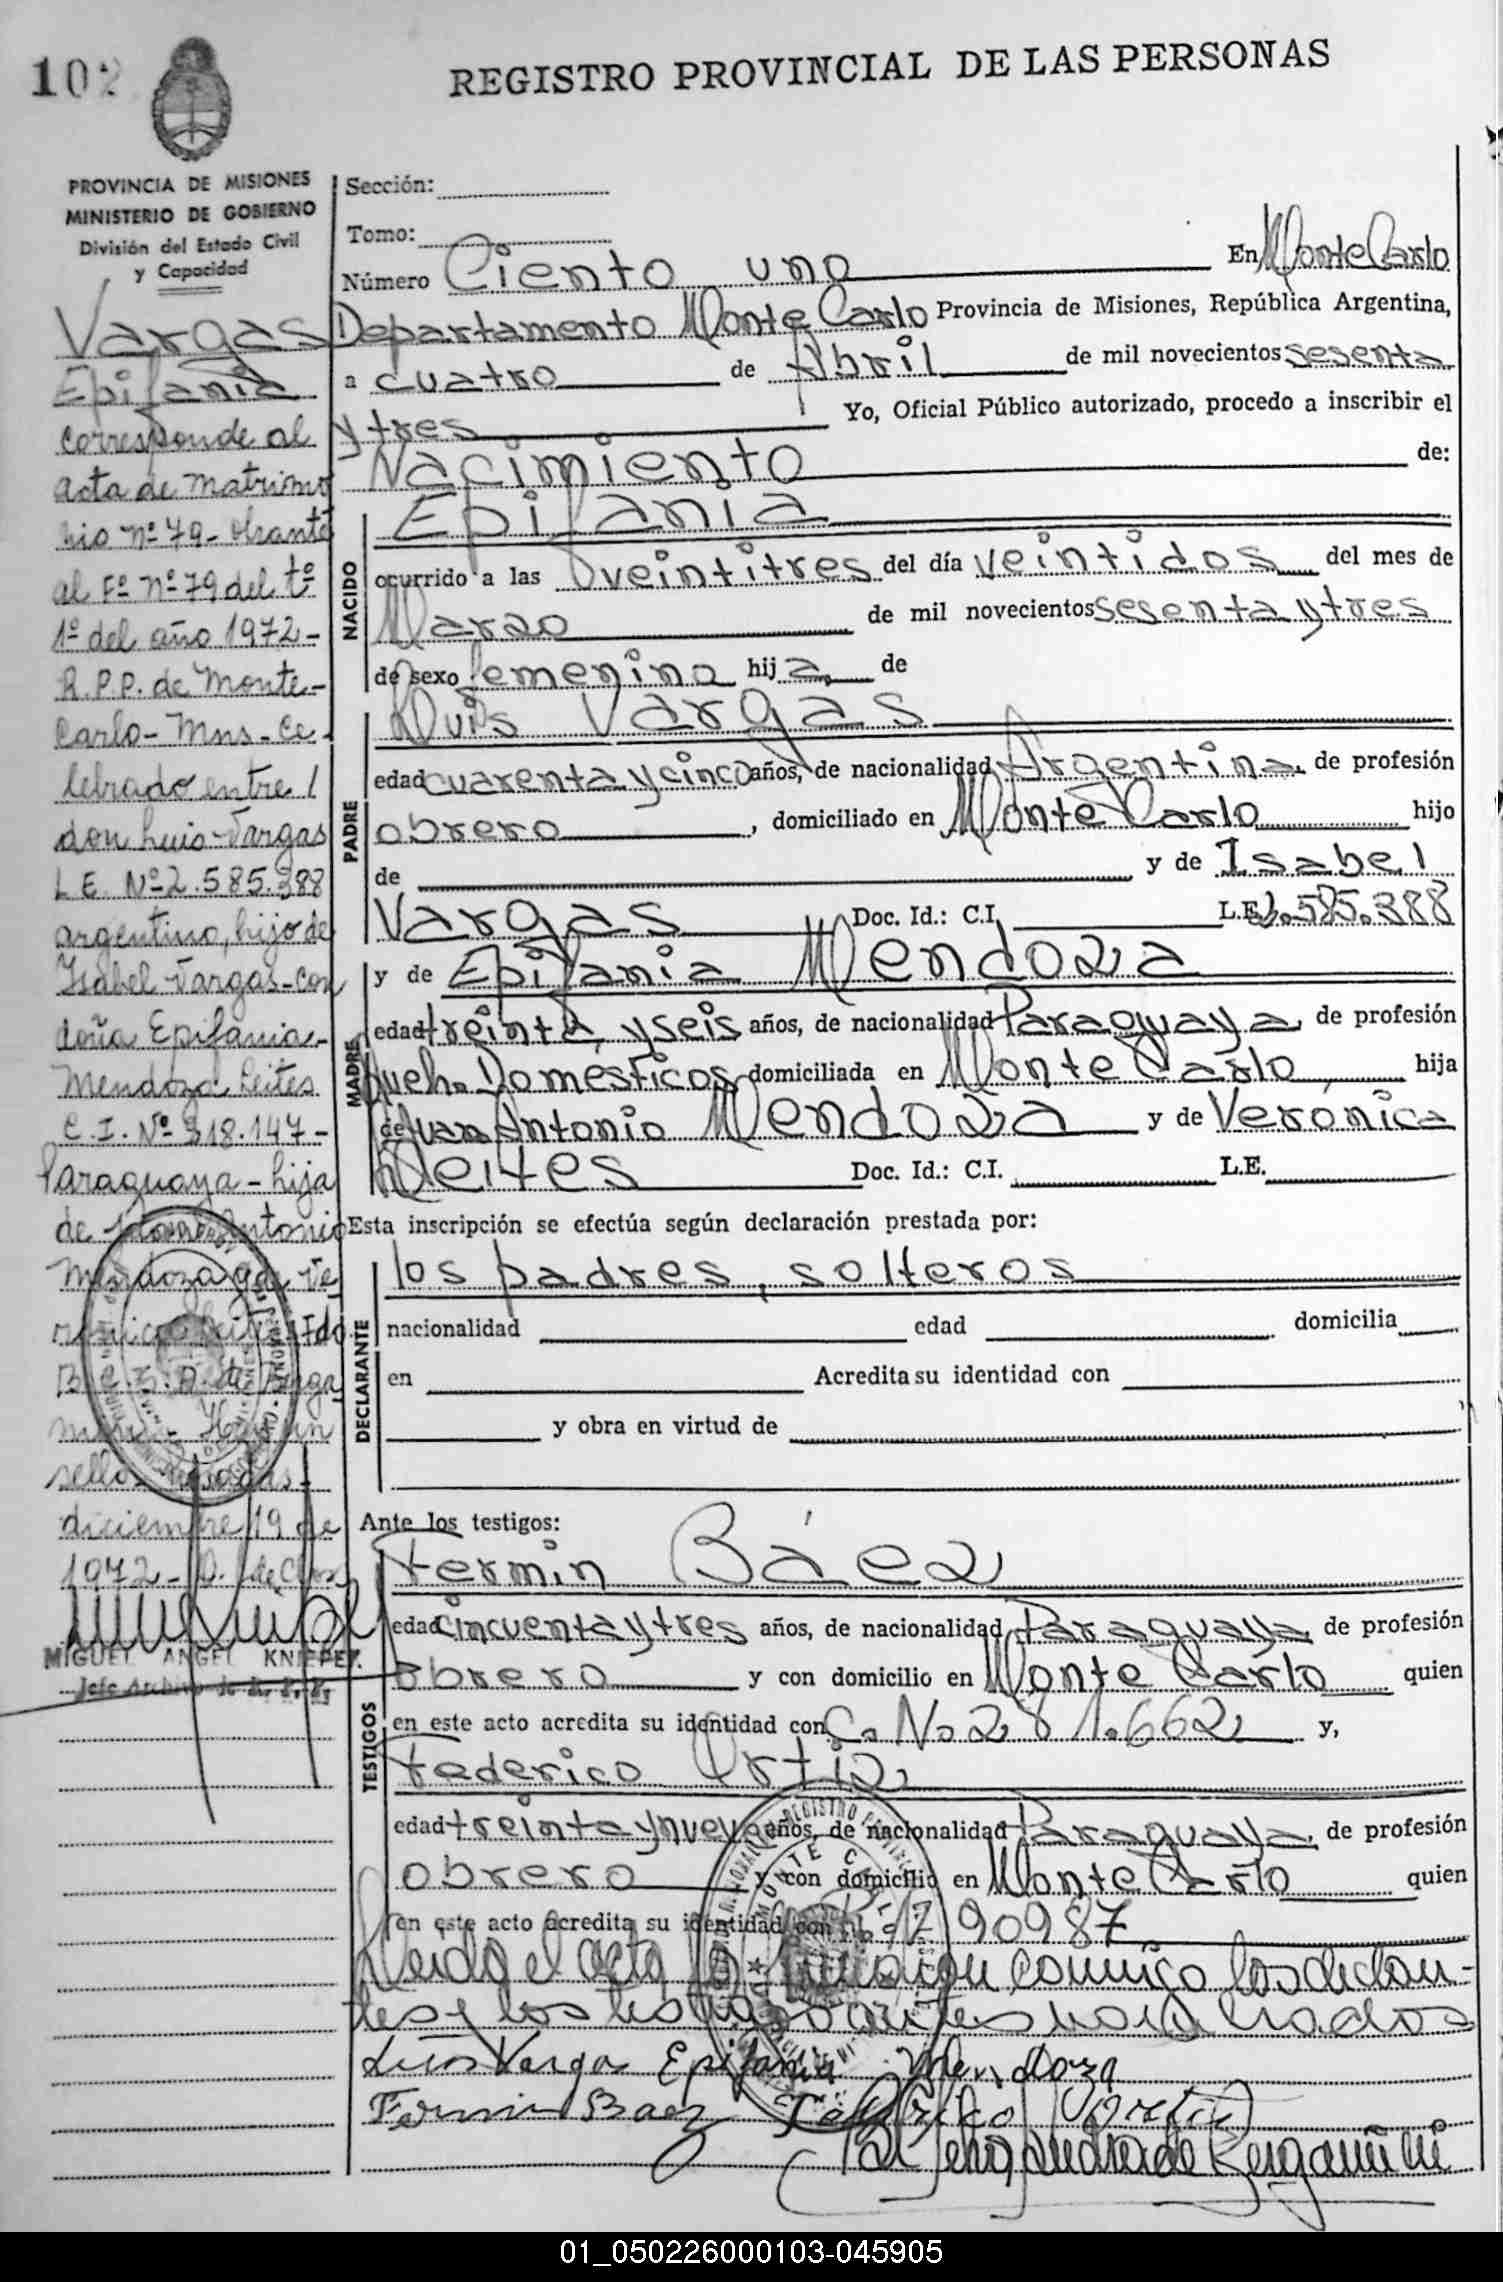 102
REGISTRO PROVINCIAL DE LAS PERSONAS
PROVINCIA DE MISIONES
MINISTERIO DE GOBIERNO
División del Estado Civil
y Capacidad
Vargas
Epifania
corresponde al
acta de matrimo
nio nº 79- obrante
al Fº nº 79 del tº
1º del año 1972-
R.P.P. de Monte-
carlo- Mns- Ce-
lebrado entre /
don Luis Vargas
L.E. Nº 2.585.388
argentino, hijo de
Isabel Vargas- con
doña Epifania-
Mendoza Leites
C.I. Nº 318.147-
Paraguaya- hija
de Antonio
Mendoza y de Ve
ronica Leites Fdo
B.
Hay un
sello
diciembre 19 de
1972-
MIGUEL ANGEL KNIEPER
Jefe Archivo de R. P. P.
Sección:
Tomo:
Número Ciento uno En Monte Carlo
Departamento Monte Carlo Provincia de Misiones, República Argentina,
a cuatro de Abril de mil novecientos sesenta
y tres Yo, Oficial Público autorizado, procedo a inscribir el
Nacimiento de:
NACIDO
Epifania
ocurrido a las veintitres del día veintidos del mes de
Marzo de mil novecientos sesenta y tres
de sexo femenino hija de
PADRE
Luis Vargas
edad cuarenta y cinco años, de nacionalidad Argentina de profesión
obrero, domiciliado en Monte Carlo hijo
de y de Isabel
Vargas Doc. Id.: C.I. L.E. 2.585.388
MADRE
y de Epifania Mendoza
edad treinta y seis años, de nacionalidad Paraguaya de profesión
queh. Domesticos domiciliada en Monte Carlo, hija
de Juan Antonio Mendoza y de Verónica
Leites Doc. Id.: C.I. L.E.
Esta inscripción se efectúa según declaración prestada por:
DECLARANTE
los padres, solteros
nacionalidad edad domicilia
en Acredita su identidad con
y obra en virtud de
Ante los testigos:
TESTIGOS
Fermin Báez
edad cincuenta y tres años, de nacionalidad Paraguaya de profesión
obrero y con domicilio en Monte Carlo quien
en este acto acredita su identidad con C. No 281.662 y,
Federico Ortiz
edad treinta y nueve años, de nacionalidad Paraguaya de profesión
obrero y con domicilio en Monte Carlo quien
en este acto acredita su identidad con 90987
Leída el acta la conmigo los declaran-
tes y los testigos antes nombrados
Luis Vargas Epifania Mendoza
Fermin Baez Federico Ortiz
de Bergamini
01_050226000103-045905